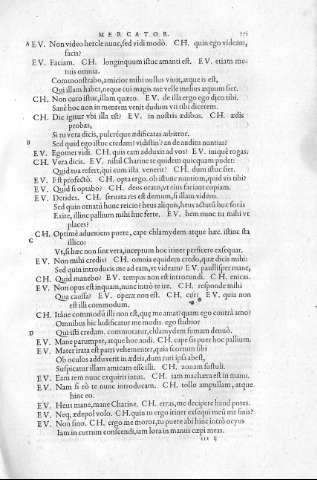 MERCATOR.
EV. Non video hercle nunc, sed vidi modò. CH. quin ego videam,
facis?
EV. Faciam. CH. longinquum istuc amanti est. EV. etiam me-
tuis omnia.
Commonstrabo, amicior mihi nullus vivit, atque is est,
Qui illam habet, neque cui magis me velle melius æquum siet.
CH. Non curo istuc, illam quæro. EV. de illa ergo ego dico tibi.
Sanè hoc non in mentem venit dudum vt tibi dicerem.
CH. Dic igitur vbi illa est? EV. in nostris ædibus. CH. ædis
probas,
Si tu vera dicis, pulcréque ædificatas arbitror.
B Sed quid ego istuc credam? vidistin'? an de audito nuntias?
EV. Egomet vidi. CH. quis eam adduxit ad vos? EV. inquè rogas:
CH. Vera dicis. EV. nihil Charine te quidem quicquam pudet:
Quid tua refert, qui cum ista venerit? CH. dum istic siet.
EV. Est profectò. CH. opta ergo ob istunc nuntium, quid vis tibi?
EV. Quid si optabo? CH. deos orato, vt eius faciant copiam.
EV. Derides. CH. servata res est demum, si illam videro.
Sed quin ornatū hunc reiicio? heus aliquis,
Exite, illinc pallium mihi huc ferte. EV. hem nunc tu mihi vt
places?
CH. Optimè advenis puere, cape chlamydem atque hæc. istinc sta
C illico:
Vt, si hæc non sint vera, inceptum hoc itiner perficere exsequar.
EV. Non mihi credis? CH. omnia equidem credo, quæ dicis mihi:
Sed quin introducis me ad eam, vt videam? EV. paullisper mane,
CH. Quid manebo? EV. tempus non est introeundi. CH. enicas.
EV. Non opus est inquam, nunc intrò te ire. CH. responde mihi
Qua causa? EV. operæ non est. CH. cur? EV. quia non
est illi commodum.
CH. Itáne commodū illi non est, quę me amat? quam ego contrā amo?
Omnibus hic ludificatur me modis. ego stultior
D Qui isti credam. commoratur, chlamydem sumam denuò.
EV. Mane parumper, atque hoc audi. CH. cape sis puer hoc pallium.
EV. Mater irata est patri vehementer, quia scortum sibi
Ob oculos adduxerit in ædeis, dum ruri ipsa abest,
Suspicatur illam amicam esse illi. CH. zonam sustuli.
EV. Eam rem nunc exquirit intus. CH. iam machæra est in manu.
EV. Nam si eò te nunc introducam. CH. tollo ampullam, atque
hinc eo.
EV. Heus mane, mane Charine. CH. erras, me decipere haud potes.
EV. Neq; ædepol volo. CH. quin tu ergo itiner exsequi meū me sinis?
EV. Non sino. CH. ergo me moror, tu puere abi hinc intrò ocyus
Iam in currum conscendi, iam lora in manus cœpi meas.